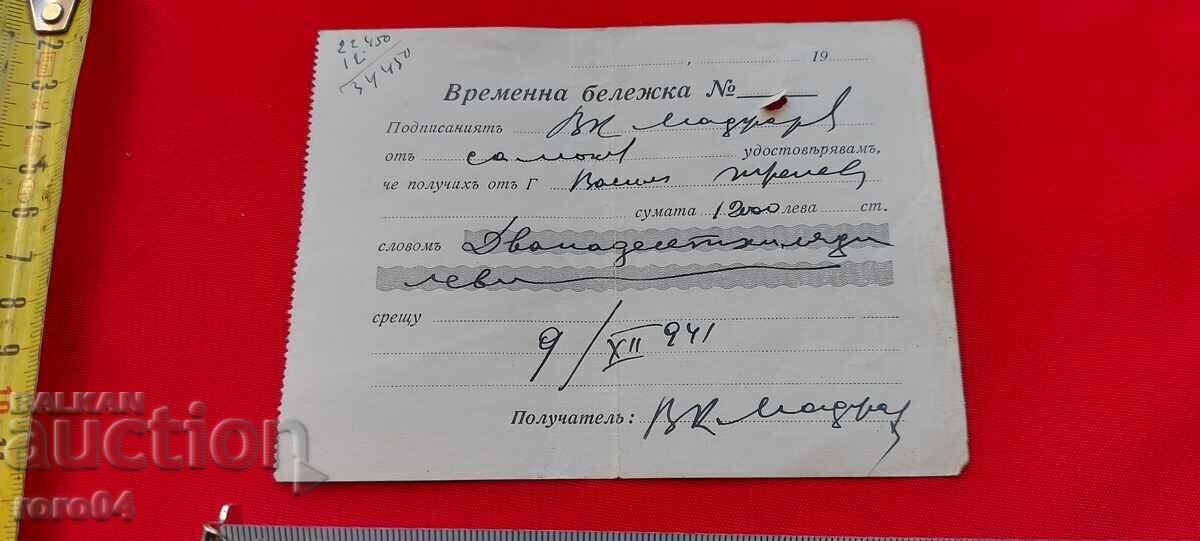 22 450
12
34 450
19
Временна бележка №
Подписаниятъ ВК
отъ Самоков удостовѣрявамъ,
че получихъ отъ Г Васил
сумата 12000 лева ст.
словомъ Дванадесетхиляди
леви
срещу
9/XII 941
Получатель: ВК
BALKAN
auction
roro04
2
3
4
5
6
7
8
9
10